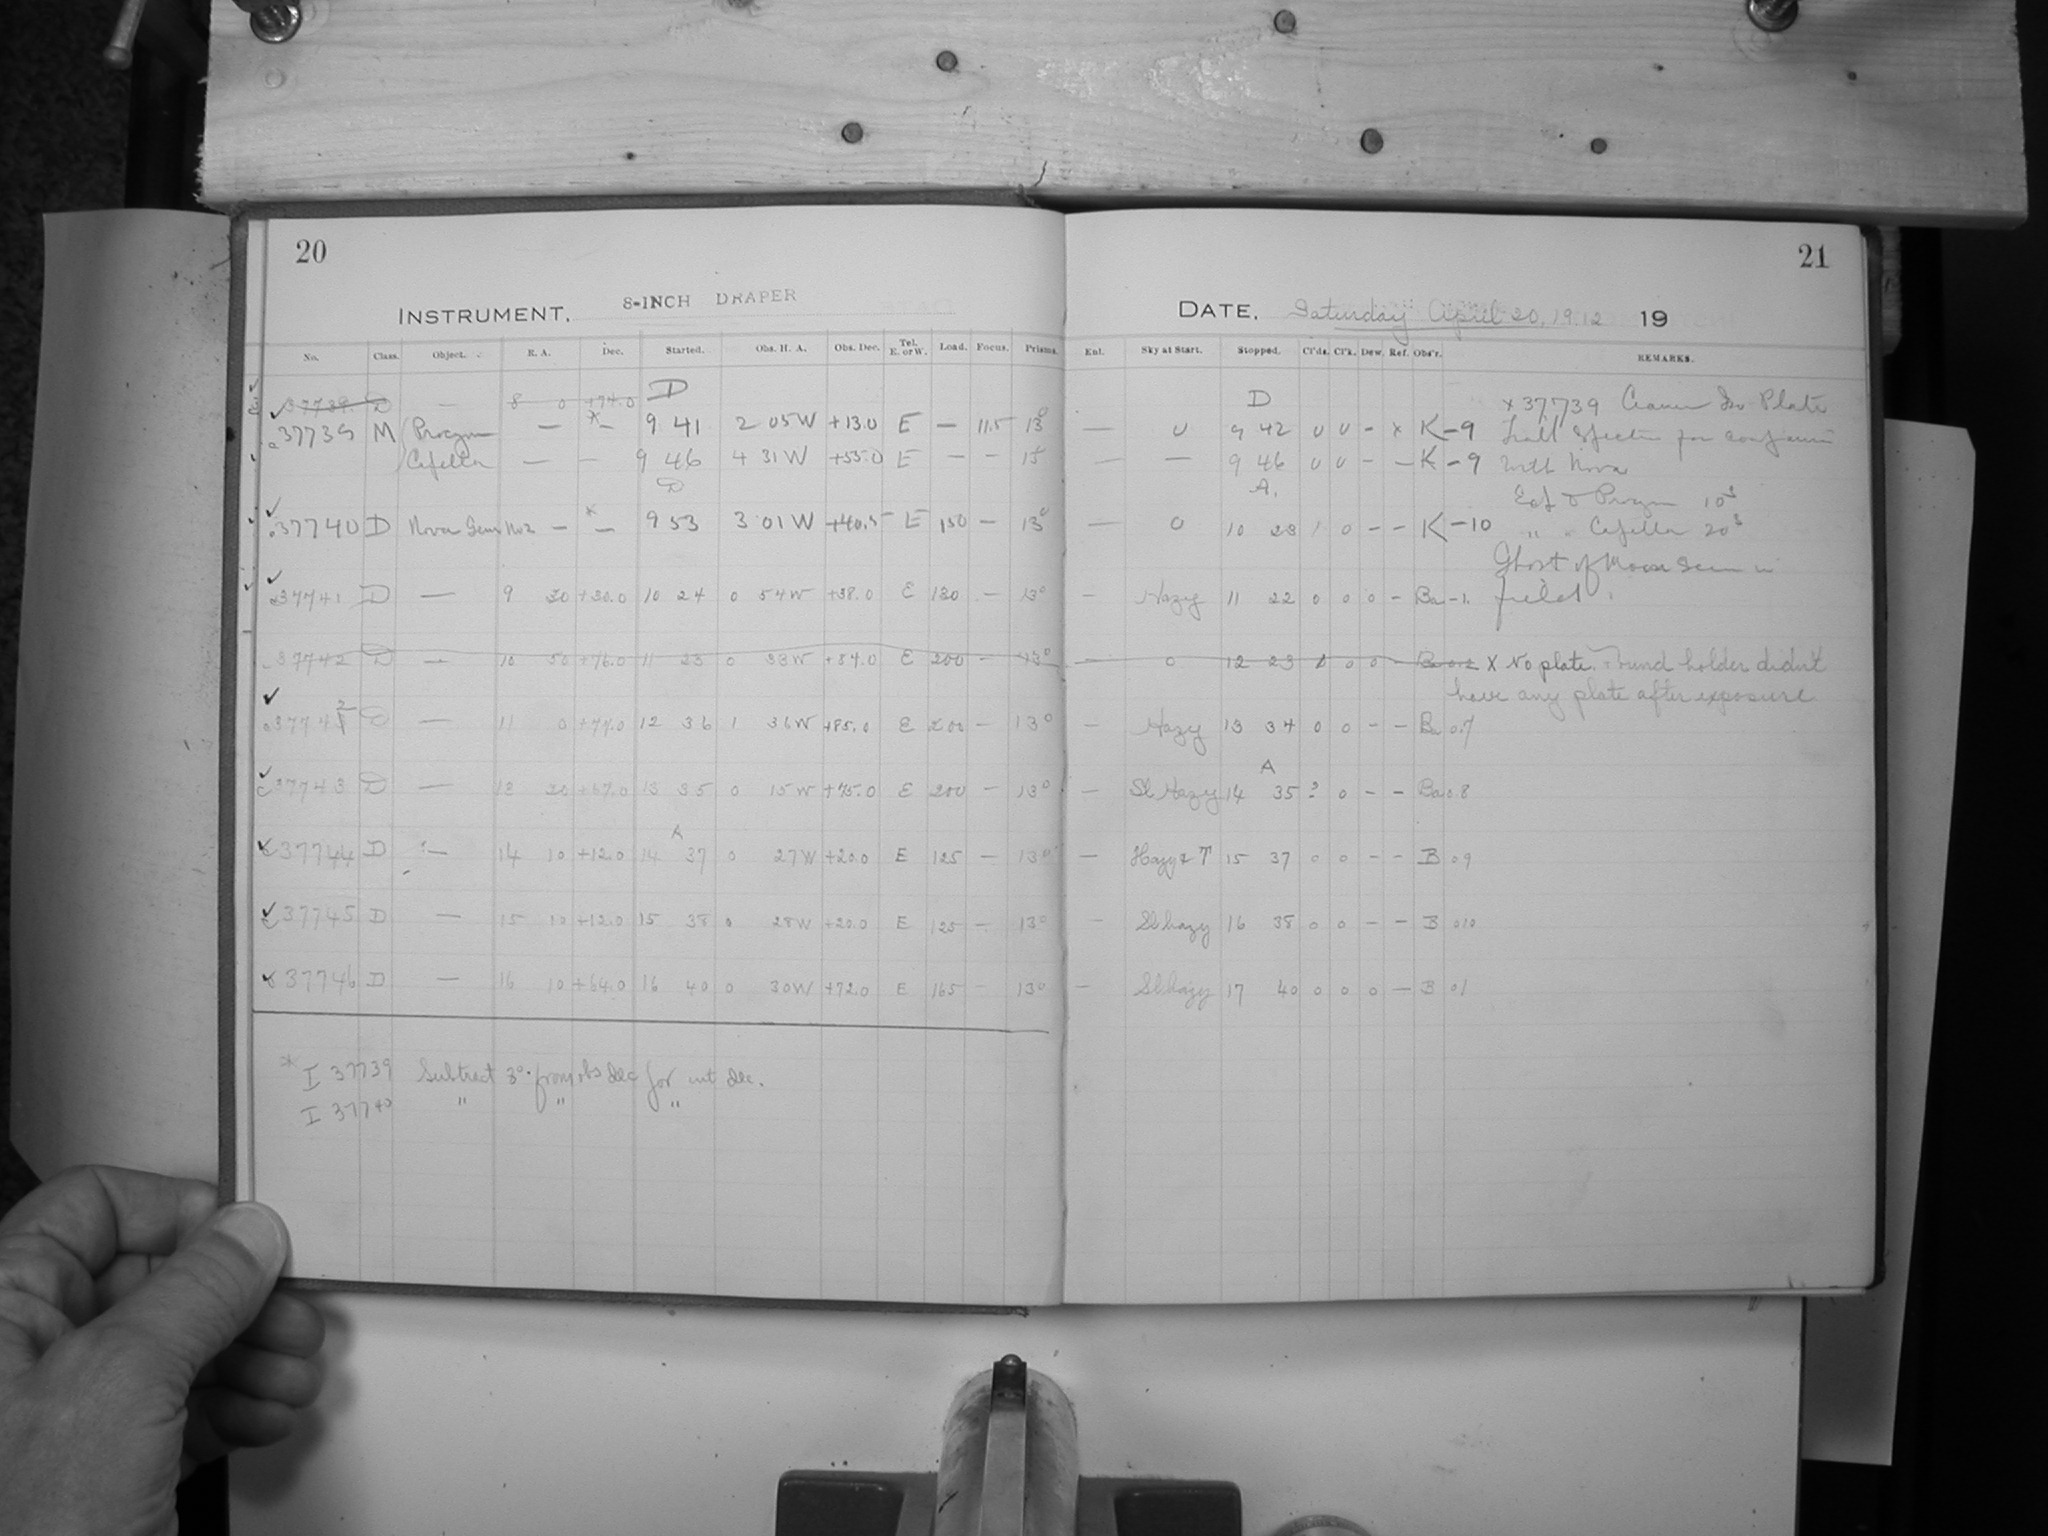 20
21
INSTRUMENT. 8-INCH DRAPER
DATE. Saturday April 20, 1912 19
No. Class. Object. R. A. Dec. Started. Obs. H. A. Obs. Dec. Tel. E. or W. Load. Focus. Prisms. Enl. Sky at Start. Stopped. Cl'ds. Cl'k. Dew. Ref. Obs'r. REMARKS.
37739 D — 8 0 +74.0 D D x 37739 Cramer Iso Plate
37739 M Procyon — * — 9 41 2 05W +13.0 E — 11.5 13° — 0 9 42 0 0 - x K-9 for
Capella — — 9 46 4 31W +55.0 E — — — — 9 46 0 0 - — K-9 with Nova
D A. Procyon 10s
37740 D Nova Gem No2 — * — 9 53 3 01W +40.5 E 150 — 13° — 0 10 23 1 0 - - K-10 " " Capella 20s
Ghost of Moon seen in
37741 D — 9 30 +30.0 10 24 0 54W +38.0 E 130 — 13° - Hazy 11 22 0 0 0 - Ba-1. field
37742 D — 10 50 +76.0 11 23 0 33W +84.0 E 200 — 13° — 0 12 23 0 0 0 - X No plate. Found holder didn't
have any plate after exposure
37742 D — 11 0 +77.0 12 36 1 36W +85.0 E 200 — 13° - Hazy 13 34 0 0 - - Ba 0.7
A
37743 D — 13 20 +67.0 13 35 0 15W +75.0 E 200 — 13° - Sl Hazy 14 35 ? 0 - - Ba 0.8
37744 D — 14 10 +12.0 14 37 0 27W +20.0 E 125 — 13° — Hazy & T 15 37 0 0 - - B 09
37745 D — 15 10 +12.0 15 38 0 28W +20.0 E 125 — 13° - Sl hazy 16 38 0 0 - - B 010
37746 D — 16 10 +64.0 16 40 0 30W +72.0 E 165 - 13° - Sl hazy 17 40 0 0 0 - B 01
* I 37739 Subtract 3° from obs dec for int dec.
I 37740 " " "